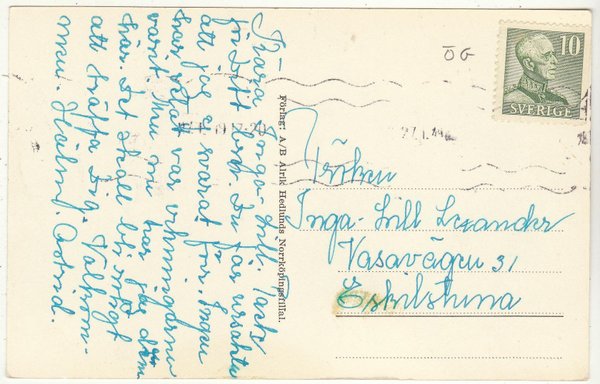 Kära Inga-Lill. Tack
för Ditt brev. Du får ursäkta
att jag ej svarat förr. Ingen
har vetat var ritningarna
varit. Men nu har jag dem
här. Det skall bli roligt
att träffa Dig. Välkom-
men. Hälsn. Astrid.
Förlag: A/B Alrik Hedlunds Norrköpingsfilial.
ÖG
10
SVERIGE
Fröken
Inga-Lill Lexander
Vasavägen 31
Eskilstuna